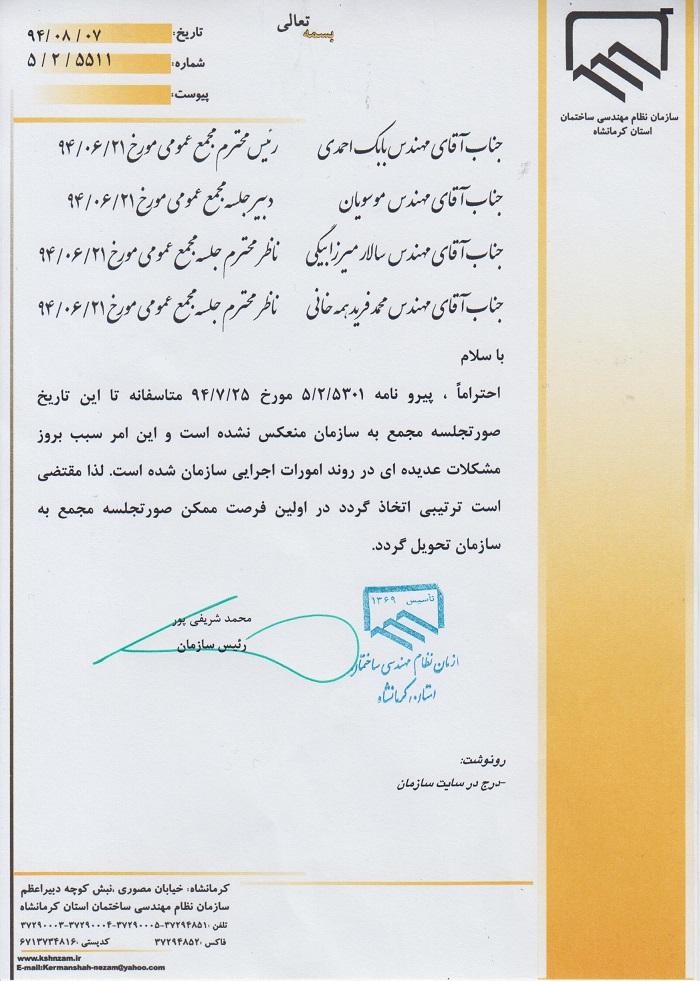 بسمه تعالی
تاریخ: ۹۴/۰۸/۰۷
شماره: ۵/۲/۵۵۱۱
پیوست:
سازمان نظام مهندسی ساختمان
استان کرمانشاه
جناب آقای مهندس بابک احمدی رئیس محترم مجمع عمومی مورخ ۹۴/۰۶/۲۱
جناب آقای مهندس موسویان دبیر جلسه مجمع عمومی مورخ ۹۴/۰۶/۲۱
جناب آقای مهندس سالار میرزابیگی ناظر محترم جلسه مجمع عمومی مورخ ۹۴/۰۶/۲۱
جناب آقای مهندس محمد فرید همه خانی ناظر محترم جلسه مجمع عمومی مورخ ۹۴/۰۶/۲۱
با سلام
احتراماً ، پیرو نامه ۵/۲/۵۳۰۱ مورخ ۹۴/۷/۲۵ متاسفانه تا این تاریخ
صورتجلسه مجمع به سازمان منعکس نشده است و این امر سبب بروز
مشکلات عدیده ای در روند امورات اجرایی سازمان شده است. لذا مقتضی
است ترتیبی اتخاذ گردد در اولین فرصت ممکن صورتجلسه مجمع به
سازمان تحویل گردد.
تأسیس ۱۳۶۹
ازمان نظام مهندسی ساختمان
استان کرمانشاه
محمد شریفی پور
رئیس سازمان
رونوشت:
-درج در سایت سازمان
کرمانشاه: خیابان مصوری ،نبش کوچه دبیراعظم
سازمان نظام مهندسی ساختمان استان کرمانشاه
تلفن :۳۷۲۹۴۸۵۱-۳۷۲۹۰۰۰۵-۳۷۲۹۰۰۰۴-۳۷۲۹۰۰۰۳
فاکس :۳۷۲۹۴۸۵۲ کدپستی :۶۷۱۳۷۳۴۸۱۶
www.kshnzam.ir
E-mail:Kermanshah-nezam@yahoo.com